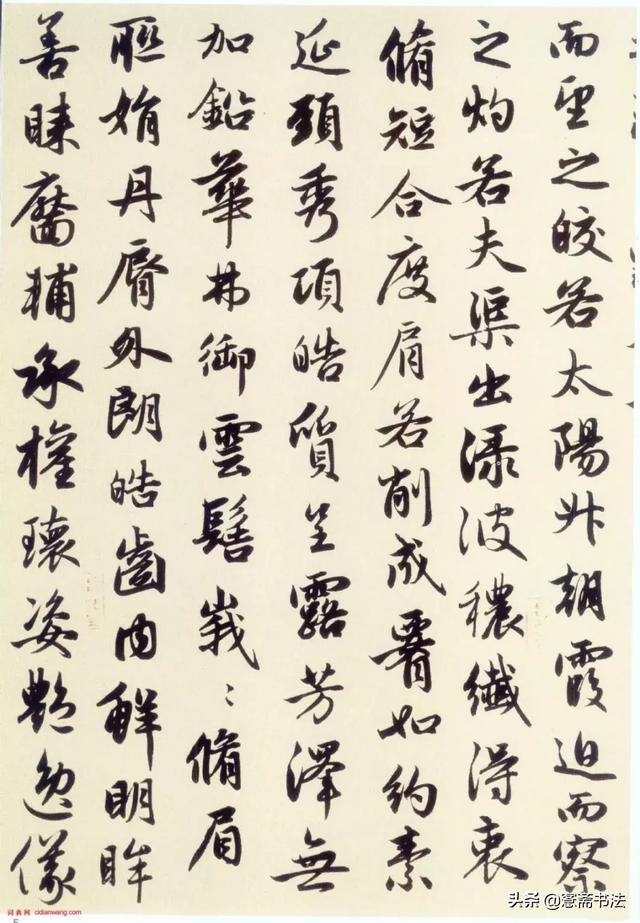 而望之皎若太陽升朝霞迫而察
之灼若夫渠出渌波穠纖得衷
脩短合度肩若削成署如約素
延頸秀項皓質呈露芳澤無
加鉛華弗御雲髻峩〻脩眉
聮娟丹脣外朗皓齒内鮮明眸
善睞靨輔承權瓌姿艷逸儀
词典网 cidianwang.com
头条 @憲斋书法